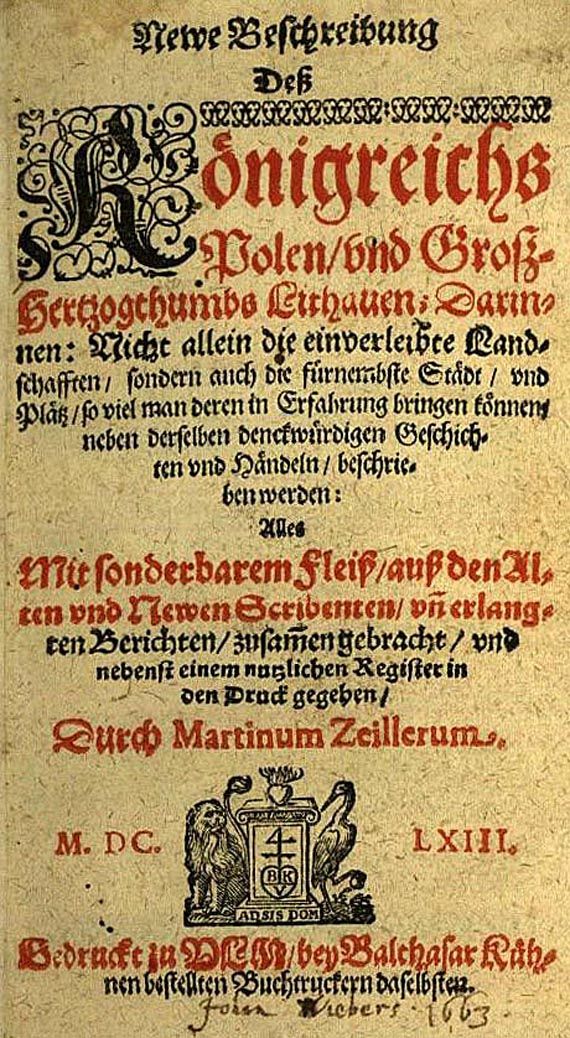 Newe Beschreibung
Deß
Königreichs
Polen/vnd Groß-
Hertzogthumbs Lithauen: Darin-
nen: Nicht allein die einverleibte Land-
schafften/ sondern auch die fürnembste Städt/ vnd
Plätz/so viel man deren in Erfahrung bringen können/
neben derselben denckwürdigen Geschich-
ten vnd Händeln/ beschrie-
ben werden:
Alles
Mit sonderbarem Fleiß/auß den Al-
ten vnd Newen Scribenten/ vñ erlang-
ten Berichten/zusam̃en gebracht/ vnd
nebenst einem nutzlichen Register in
den Druck gegeben/
Durch Martinum Zeillerum.
M. DC. LXIII.
B K
Gedruckt zu VLM/bey Balthasar Küh-
nen bestellten Buchtruckern daselbsten.
1663